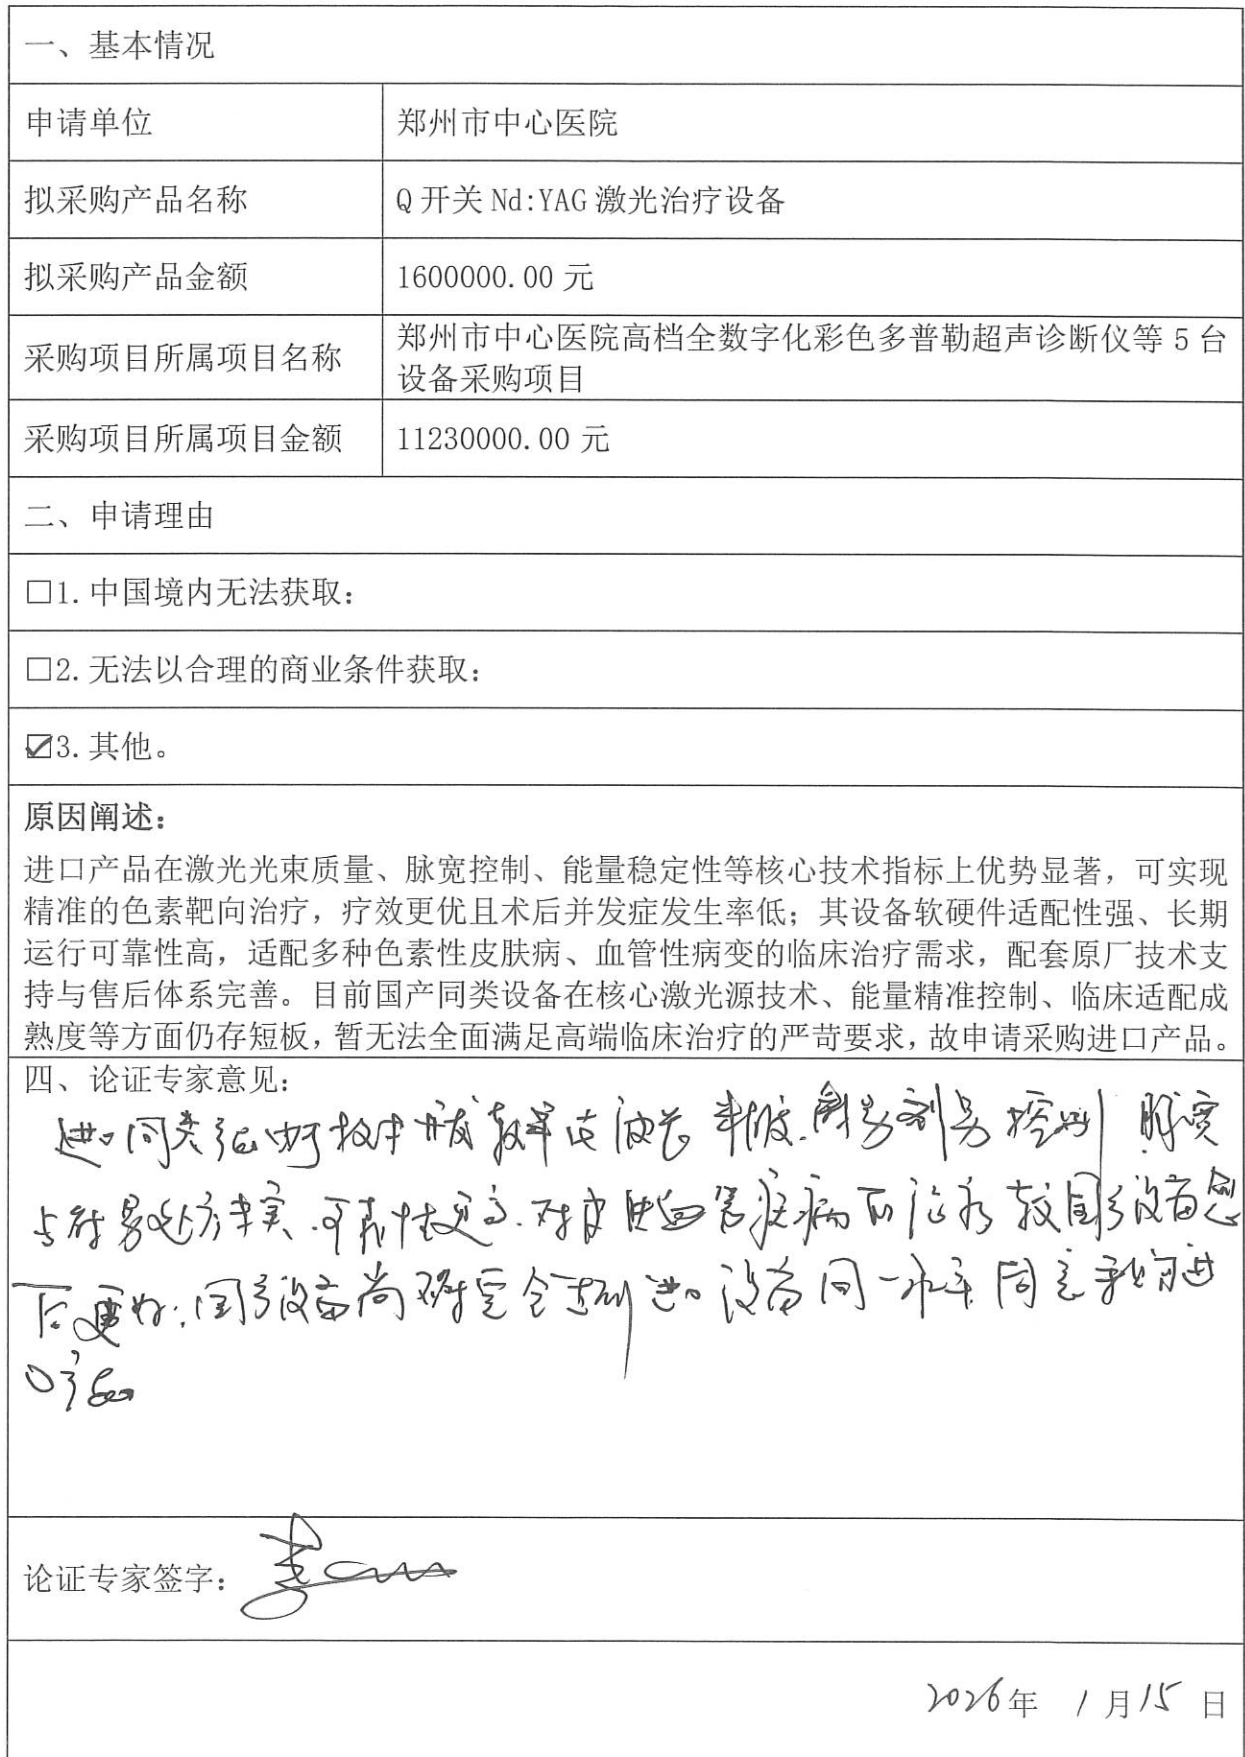 一、基本情况
申请单位
郑州市中心医院
拟采购产品名称
Q开关Nd:YAG激光治疗设备
拟采购产品金额
1600000.00元
采购项目所属项目名称
郑州市中心医院高档全数字化彩色多普勒超声诊断仪等5台
设备采购项目
采购项目所属项目金额
11230000.00元
二、申请理由
□1.中国境内无法获取：
□2.无法以合理的商业条件获取：
☑3.其他。
原因阐述：
进口产品在激光光束质量、脉宽控制、能量稳定性等核心技术指标上优势显著，可实现
精准的色素靶向治疗，疗效更优且术后并发症发生率低；其设备软硬件适配性强、长期
运行可靠性高，适配多种色素性皮肤病、血管性病变的临床治疗需求，配套原厂技术支
持与售后体系完善。目前国产同类设备在核心激光源技术、能量精准控制、临床适配成
熟度等方面仍存短板，暂无法全面满足高端临床治疗的严苛要求，故申请采购进口产品。
四、论证专家意见：
进口同类 技术 波长 控制 脉宽
可靠性更高.对皮肤血管疾病的治疗较国产设备
更好.国产设备尚 完全达到进口设备同一水平 同意采购进
口产品
论证专家签字：
2026年 1月15日